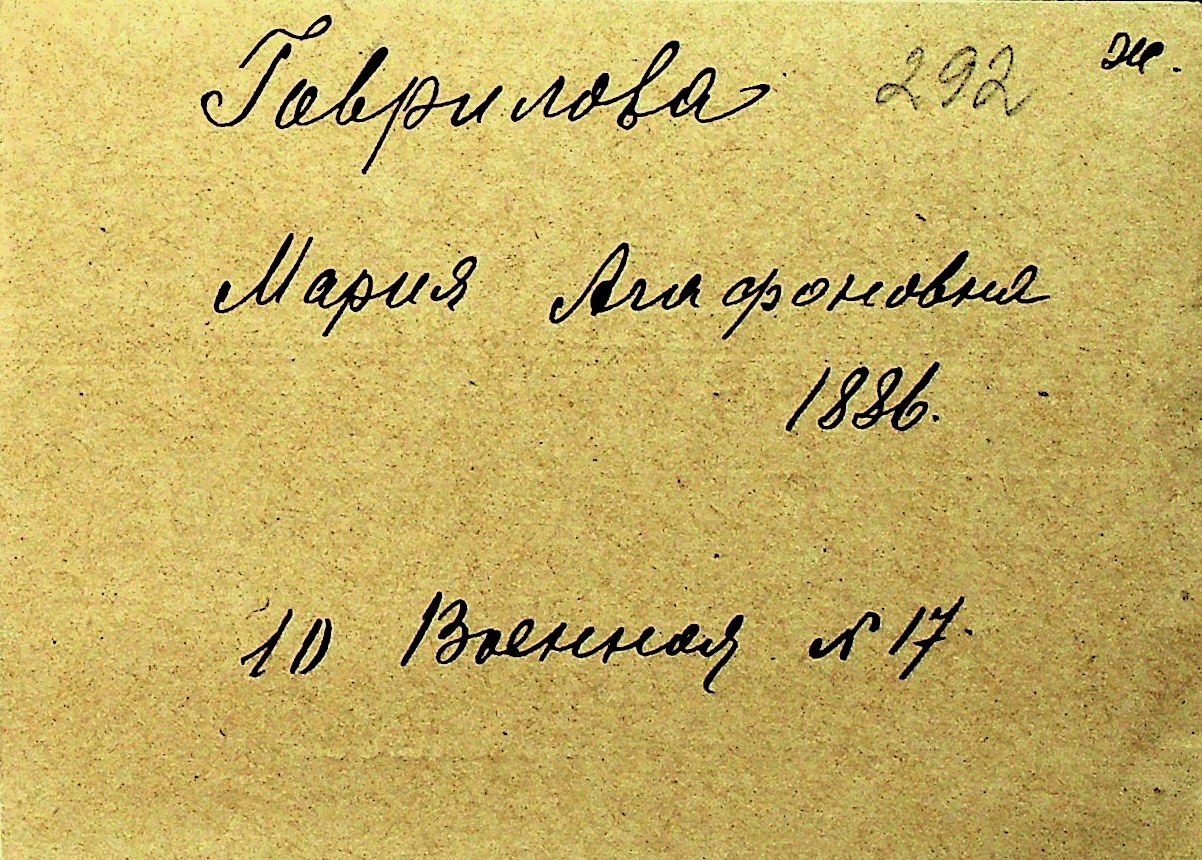 Гаврилова 292 ж.
Мария Агафоновна
1886.
10 Военная № 17.